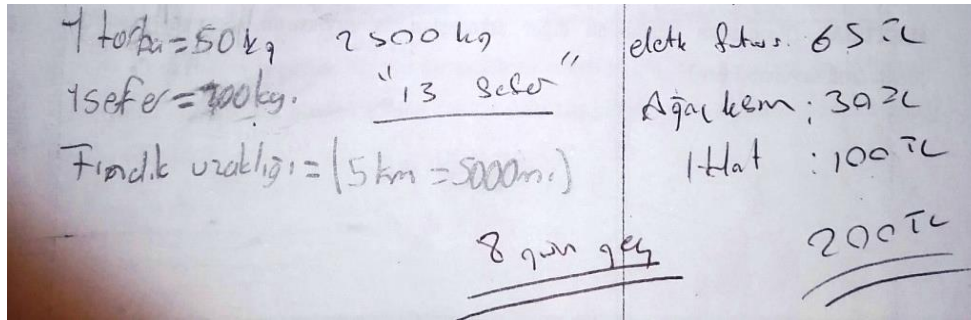 1 torba=50kg 2500 kg
1 sefer=200kg. "13 Sefer"
Fındık uzaklığı=(5km=5000m.)
8 gün geç
65 TL
Ağaç kesm : 30 TL
: 100 TL
200 TL